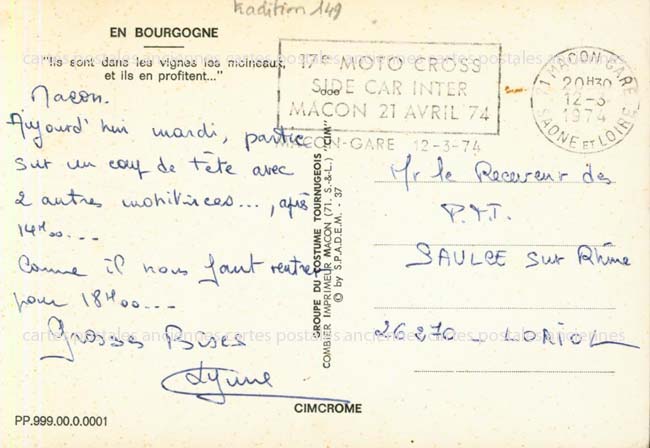 tradition 149
EN BOURGOGNE
"Ils sont dans les vignes les moineaux,
et ils en profitent..."
cartes postales anciennes cartes postales anciennes cartes postales anciennes
17e MOTO CROSS
SIDE CAR INTER
MACON 21 AVRIL 74
71 MACON-GARE
20H30
12-3
1974
SAONE ET LOIRE
MACON-GARE 12-3-74
Macon.
Aujourd'hui mardi, partie
sur un coup de tête avec
2 autres
..., après
14H00...
Comme il nous faut rentrer
pour 18H00...
Grosses Bises
GROUPE DU COSTUME TOURNUGEOIS
COMBIER IMPRIMEUR MACON (71. S.-&-L.) "CIM"
© by S.P.A.D.E.M. - 37
Mr le Receveur des
P.T.T.
SAULCE sur Rhône
26270 - LORIOL
cartes postales anciennes cartes postales anciennes cartes postales anciennes
CIMCROME
PP.999.00.0.0001